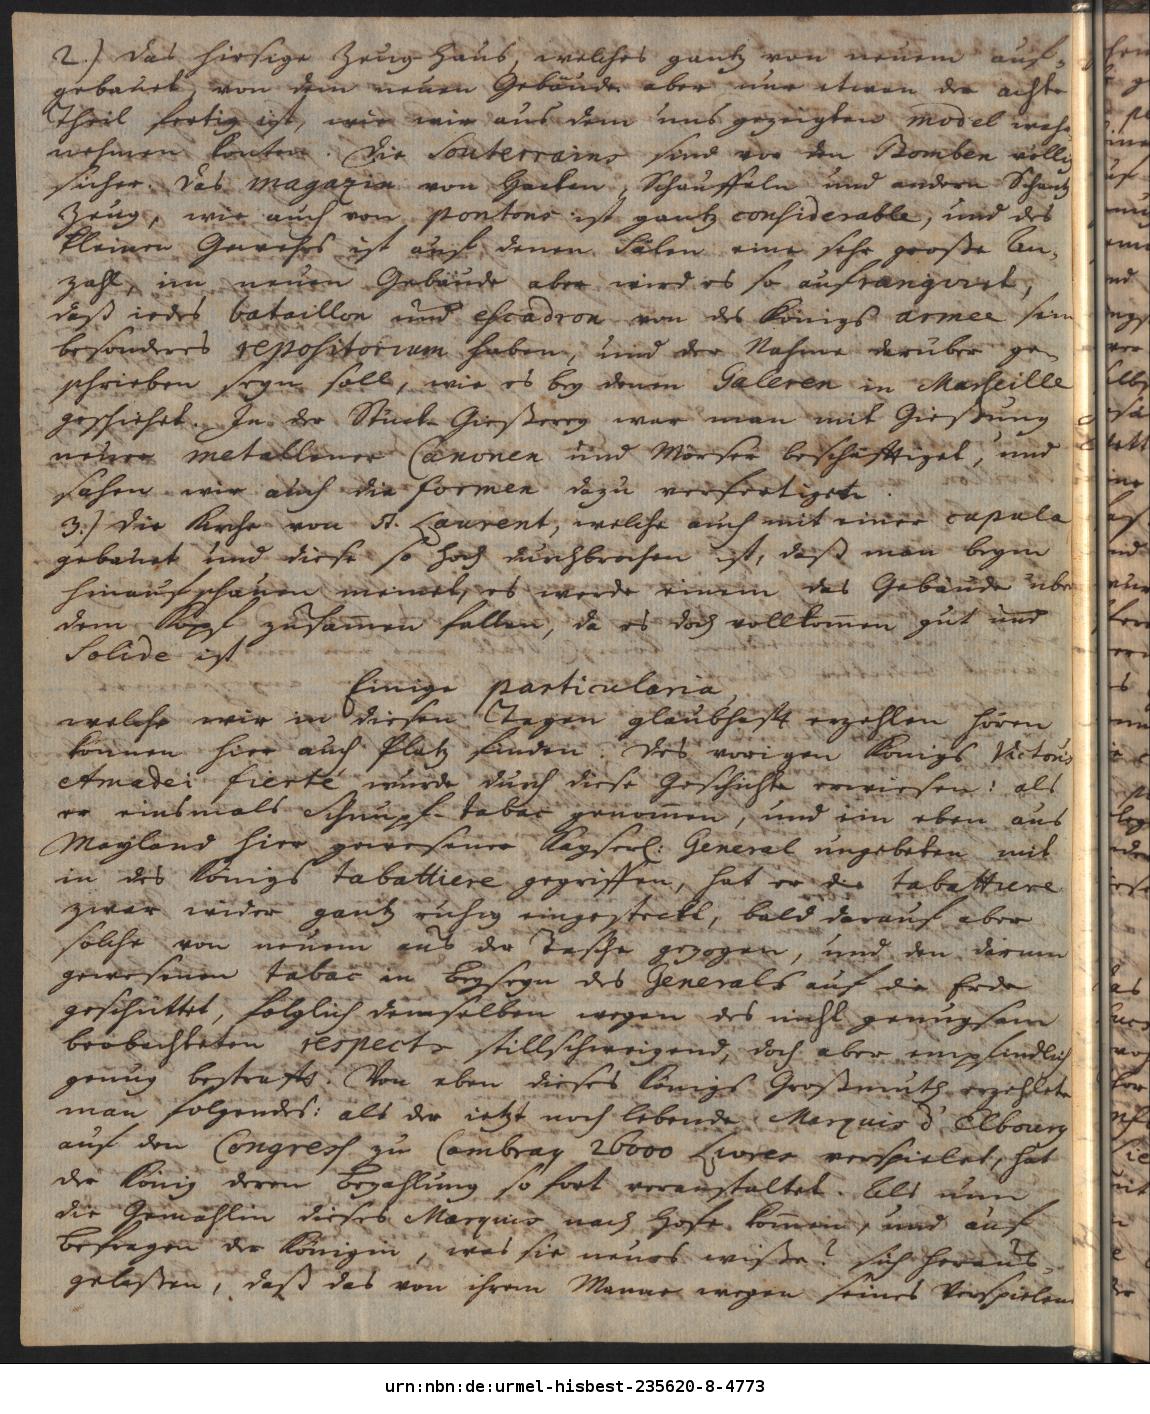 2.) das hiesige Zeug-Haus, welches gantz von neuem auf-
gebauet, von dem neuen Gebäude aber nur etwan der achte
Theil fertig ist, wie wir aus dem uns gezeigten model wahr
nehmen konten. Die Souterrains sind vor den Bomben völlig
sicher. Das magazin von Hacken, Schauffeln und andern Schantz
Zeug, wie auch von pontons ist gantz considerable, und des
kleinen Gewehrs ist auf denen Sälen eine sehr große An-
zahl, im neuen Gebäude aber wird es so aufrangiret,
daß iedes bataillon und escadron von des Königs armee sein
besonderes repositorium haben, und der Nahme darüber ge-
schrieben seyn soll, wie es bey denen Galeren in Marseille
geschiehet. In der Stück-Gießerey war man mit Gießung
neuer metallener Canonen und Mörser beschäfftiget, und
sahen wir auch die formen dazu verfertigen.
3.) die Kirche von St. Laurent, welche auch mit einer cupula
gebauet und diese so hoch durchbrochen ist, daß man beym
hinaufschauen meinet, es werde einem das Gebäude über
dem Kopf zusam̅en fallen, da es doch vollkom̅en gut und
Solide ist
Einige particularia,
welche wir in diesen Tagen glaubhafft erzehlen hören
können hier auch Platz finden. Des vorigen Königs Victoris
Amadei fierté wurde durch diese Geschichte erwiesen: als
er einsmals Schnupf-tabac genom̅en, und ein eben aus
Mayland hier gewesener Kayserl: General ungebeten mit
in des Königs tabattiere gegriffen, hat er die tabattiere
zwar wider gantz ruhig eingesteckt, bald darauf aber
solche von neuem aus der Tasche gezogen, und den darinn
gewesenen tabac in Beyseyn des Generals auf die Erde
geschüttet, folglich demselben wegen des nicht genugsam
beobachteten respects stillschweigend, doch aber empfindlich
genug bestrafft. Von eben dieses Königs Großmuth erzehlete
man folgendes: als der ietzt noch lebende Marquis d'Elbourg
auf den Congress zu Cambray 26000 Livres verspielet, hat
der König deren Bezahlung so fort veranstaltet. Als nun
die Gemahlin dieses Marquis nach Hofe kom̅en, und auf
Befragen der Königin, was sie neues wiße? sich heraus-
gelaßen, daß das von ihrem Manne wegen seines Verspielens
urn:nbn:de:urmel-hisbest-235620-8-4773